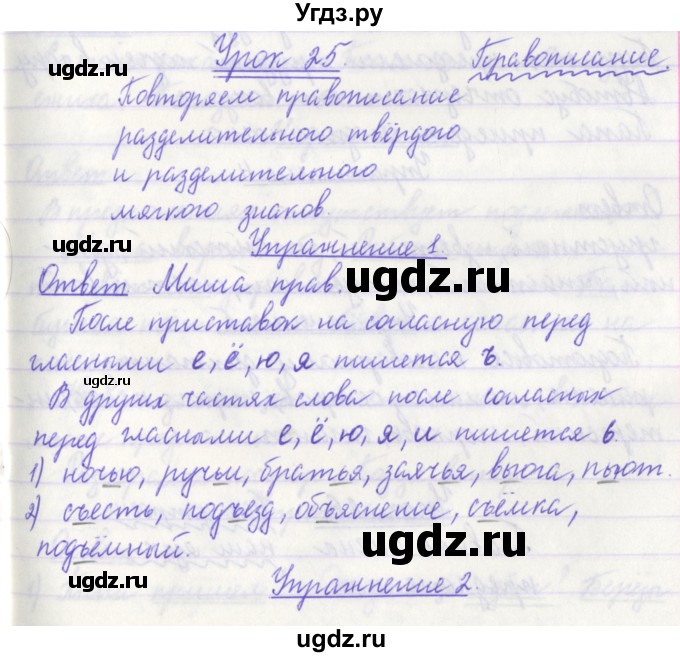 Угдз.ру
Урок 25. Правописание.
ugdz.ru
Повторяем правописание
разделительного твёрдого
и разделительного
мягкого знаков.
ugdz.ru
Упражнение 1.
Ответ Миша прав.
ugdz.ru
После приставок на согласную перед
гласными е, ё, ю, я пишется ъ.
ugdz.ru
В других частях слова после согласных
перед гласными е, ё, ю, я, и пишется ь.
1) ночью, ручьи, братья, заячья, вьюга, пьют.
ugdz.ru
2) съесть, подъезд, объяснение, съёмка,
подъёмный.
ugdz.ru
ugdz.ru
Упражнение 2.
ugdz.ru
ugdz.ru